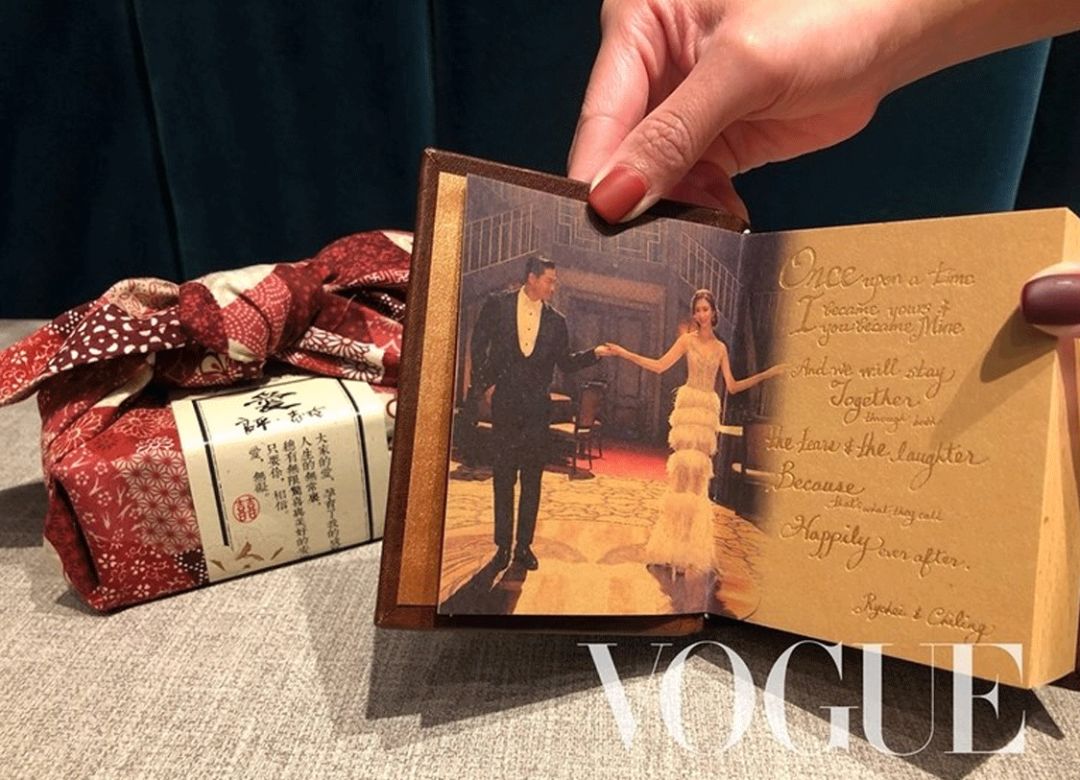 愛
志玲
大家的愛，孕育了我的
人生的無常裏，
總有無限驚喜與美好的
只要你，相信，
愛，無
囍
Once upon a time
I became yours &
you became Mine
And we will stay
Together
through both
the tears & the laughter
Because
that's what they call
Happily ever after.
Ryohei & Chiling
VOGUE